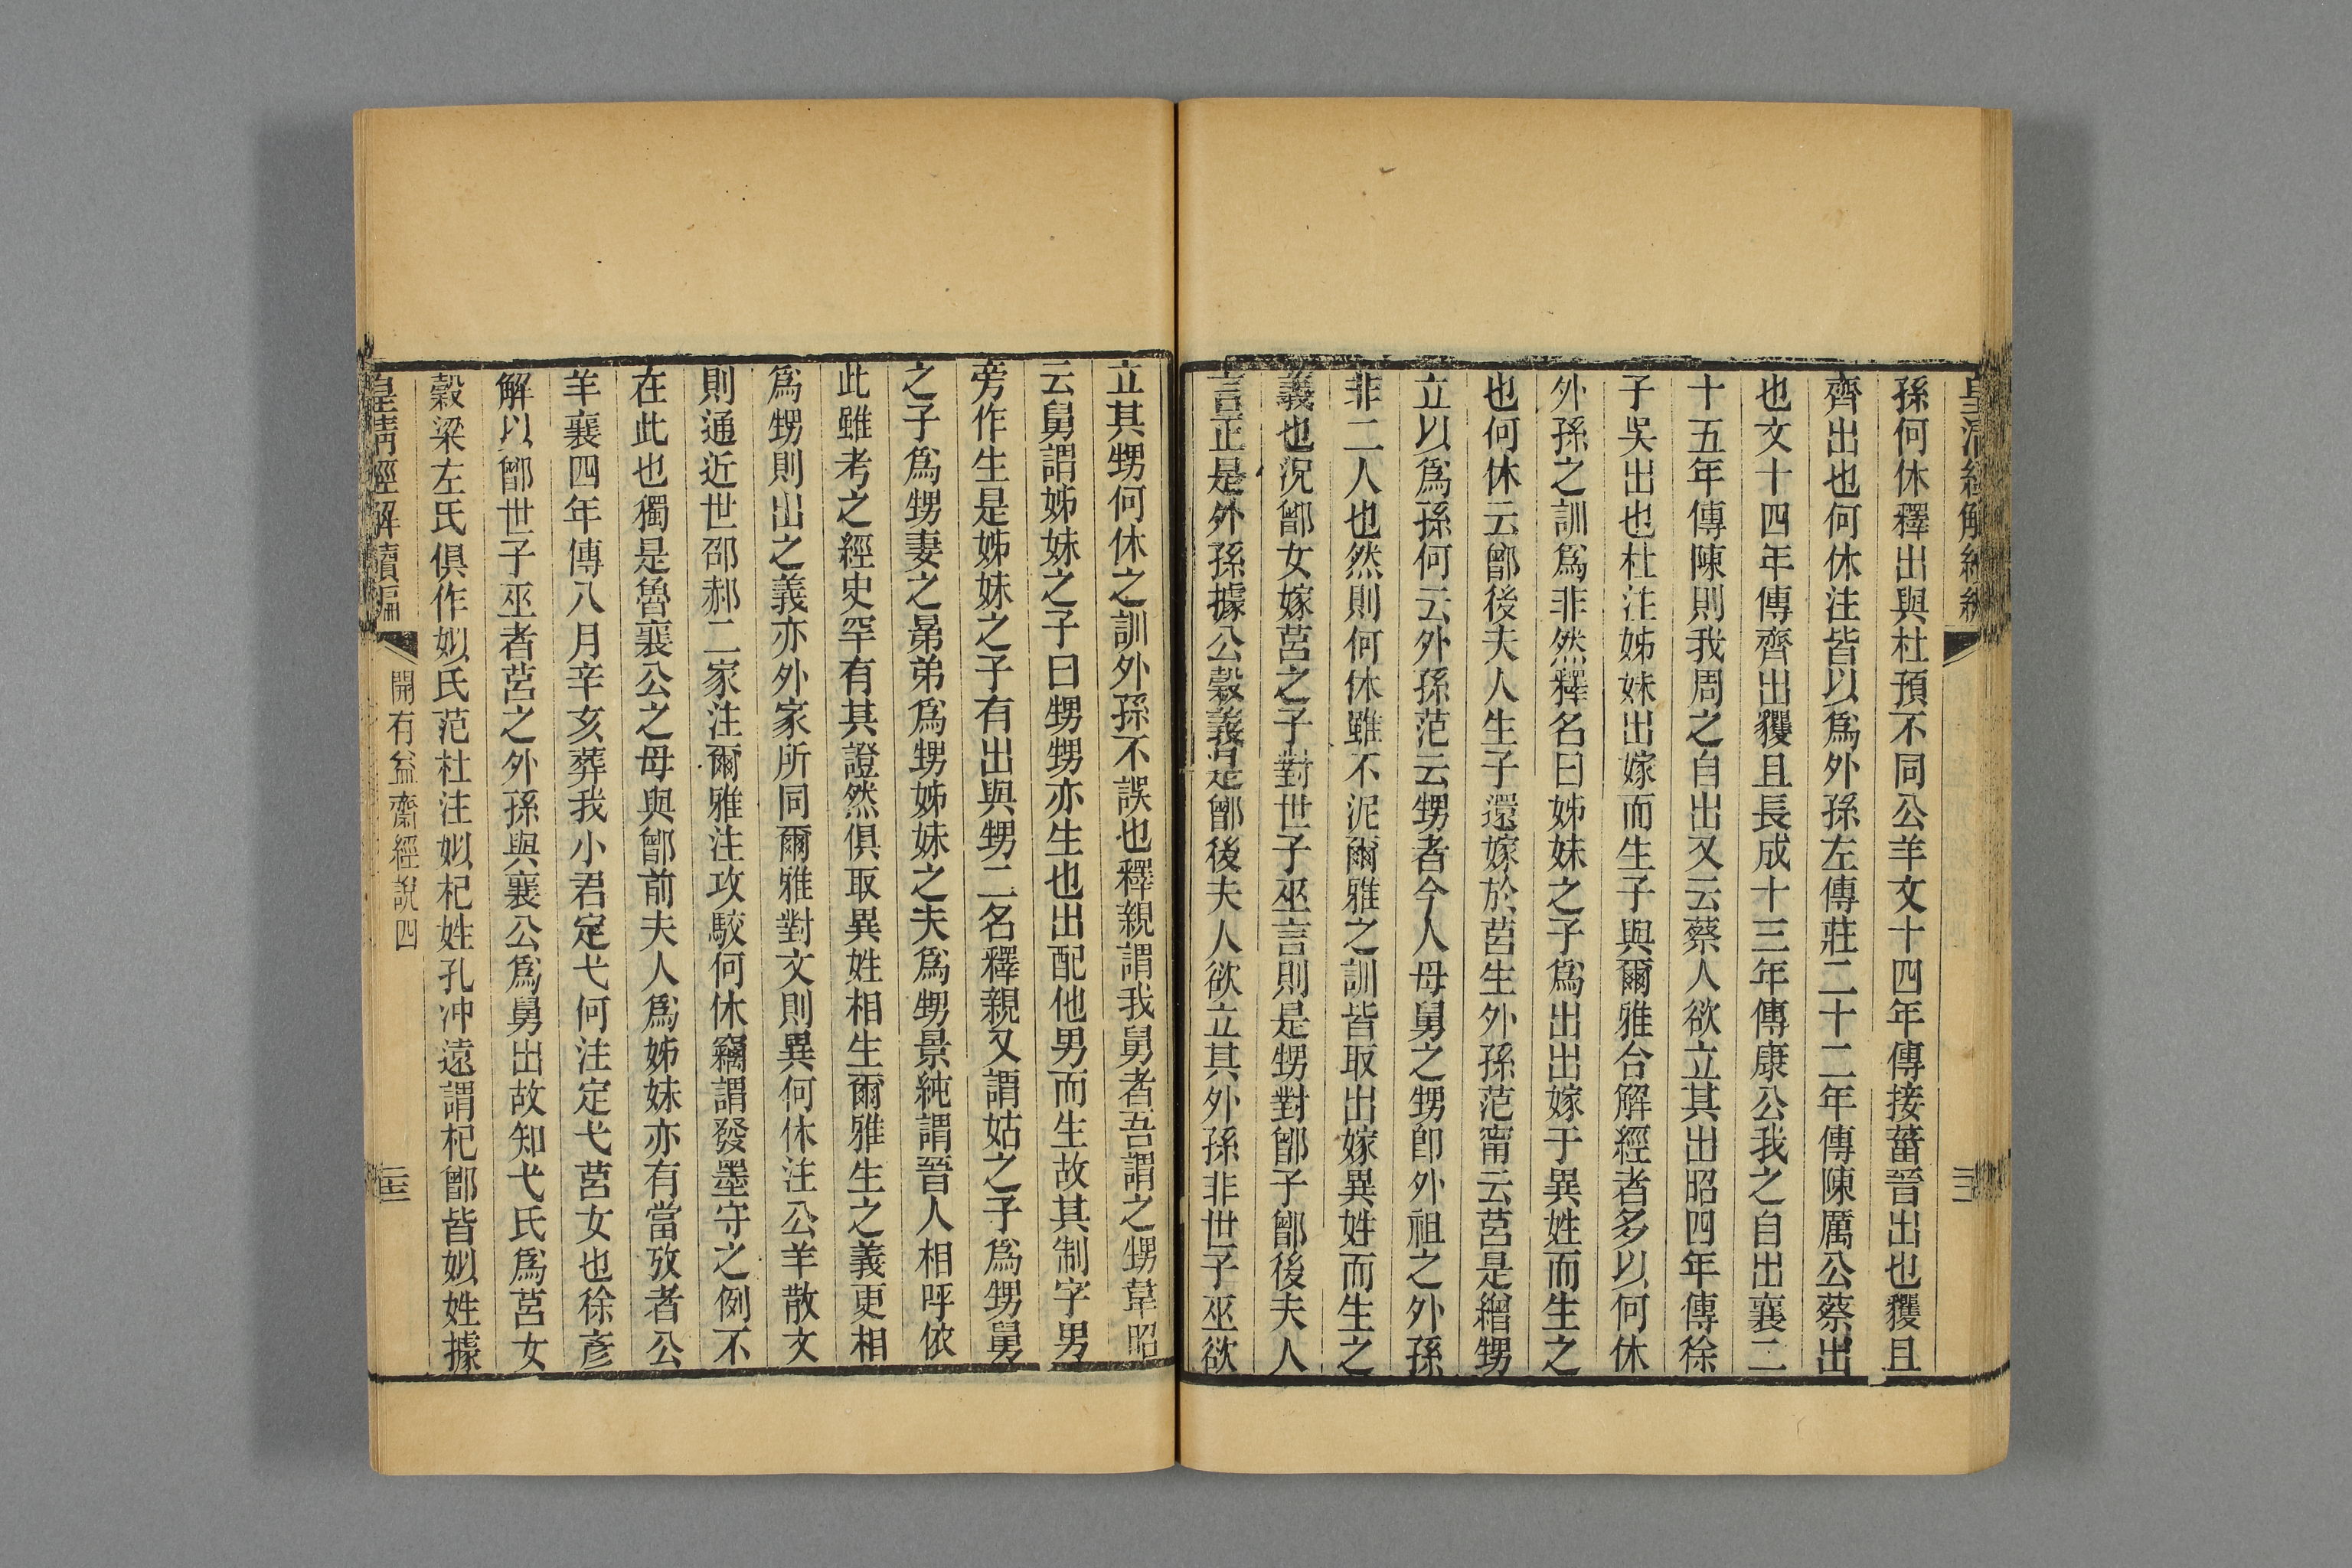 孫何休釋出與杜預不同公羊文十四年傳接菑晉出也貜且
齊出也何休注皆以爲外孫左傳莊二十二年傳陳厲公蔡出
也文十四年傳齊出貜且長成十三年傳康公我之自出襄二
十五年傳陳則我周之自出又云蔡人欲立其出昭四年傳徐
子吳出也杜注姊妹出嫁而生子與爾雅合解經者多以何休
外孫之訓爲非然釋名曰姊妹之子爲出出嫁于異姓而生之
也何休云鄫後夫人生子還嫁於莒生外孫范甯云莒是繒甥
立以爲孫何云外孫范云甥者今人母舅之甥卽外祖之外孫
非二人也然則何休雖不泥爾雅之訓皆取出嫁異姓而生之
義也況鄫女嫁莒之子對世子巫言則是甥對鄫子鄫後夫人
言正是外孫據公穀義是鄫後夫人欲立其外孫非世子巫欲
立其甥何休之訓外孫不誤也釋親謂我舅者吾謂之甥韋昭
云舅謂姊妹之子曰甥甥亦生也出配他男而生故其制字男
旁作生是姊妹之子有出與甥二名釋親又謂姑之子爲甥舅
之子爲甥妻之晜弟爲甥姊妹之夫爲甥景純謂晉人相呼依
此雖考之經史罕有其證然俱取異姓相生爾雅生之義更相
爲甥則出之義亦外家所同爾雅對文則異何休注公羊散文
則通近世邵郝二家注爾雅注攻駁何休竊謂發墨守之例不
在此也獨是魯襄公之母與鄫前夫人爲姊妹亦有當攷者公
羊襄四年傳八月辛亥葬我小君定弋何注定弋莒女也徐彥
解以鄫世子巫者莒之外孫與襄公爲舅出故知弋氏爲莒女
穀梁左氏俱作姒氏范杜注姒杞姓孔冲遠謂杞鄫皆姒姓據
皇清經解續編 開有益齋經說四